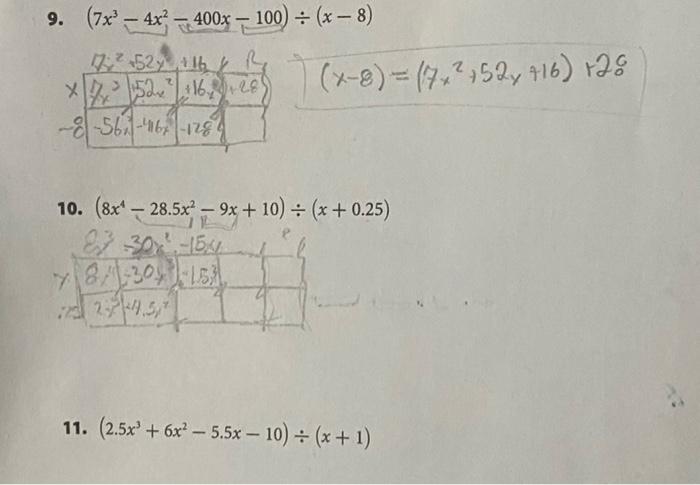 9. (7x³ – 4x² – 400x – 100) ÷ (x – 8)
7x² +52x +16 R
x 7x³ 52x² +16x +28
-8 -56x² -416x -128
(x-8) = (7x²+52x+16) +28
10. (8x⁴ – 28.5x² – 9x + 10) ÷ (x + 0.25)
8x³ -30x² -15x
x -30x³
11. (2.5x³ + 6x² – 5.5x – 10) ÷ (x + 1)